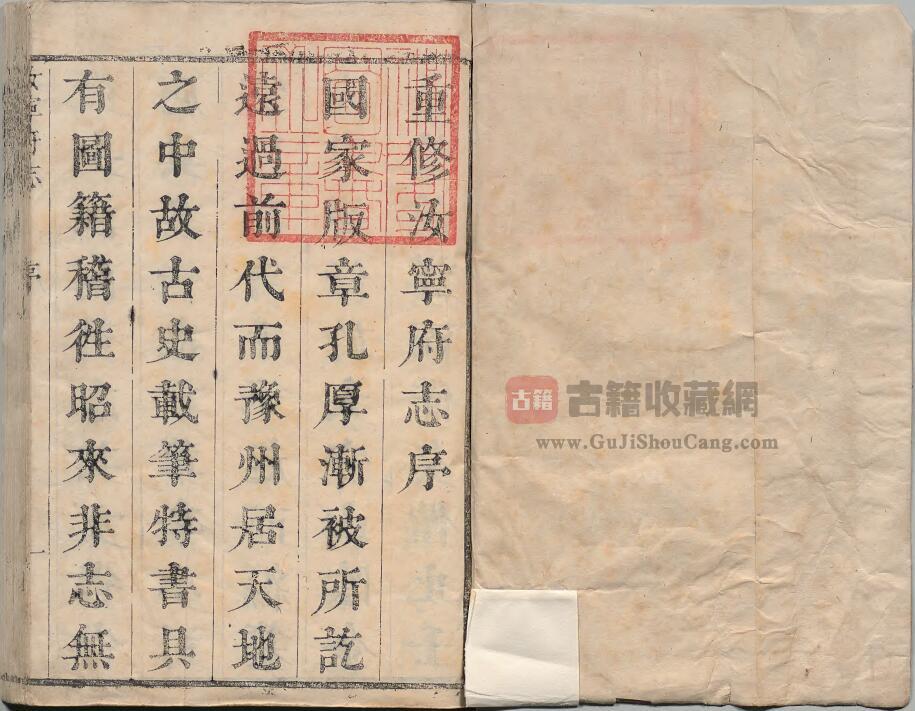 重修汝寧府志序
國家版章孔厚漸被所訖
遠過前代而豫州居天地
之中故古史載筆特書具
有圖籍稽徃昭來非志無
汝寧府志
序
一
古籍
古籍收藏網
www.GuJiShouCang.com